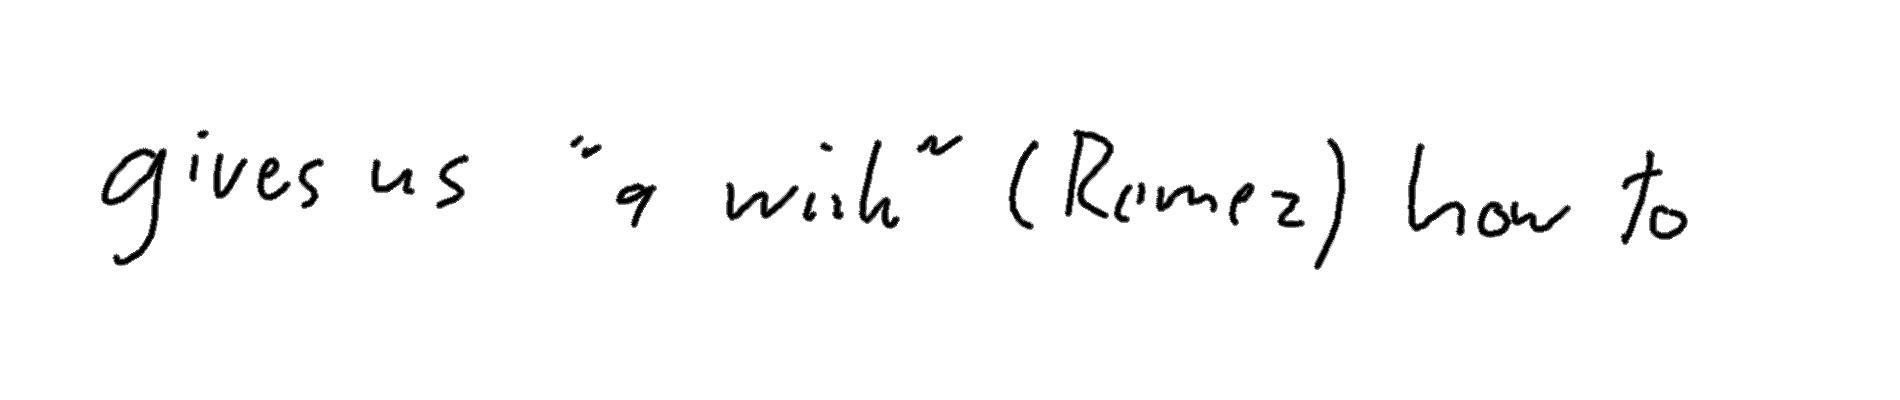 gives us "a wish" (Ramez) how to